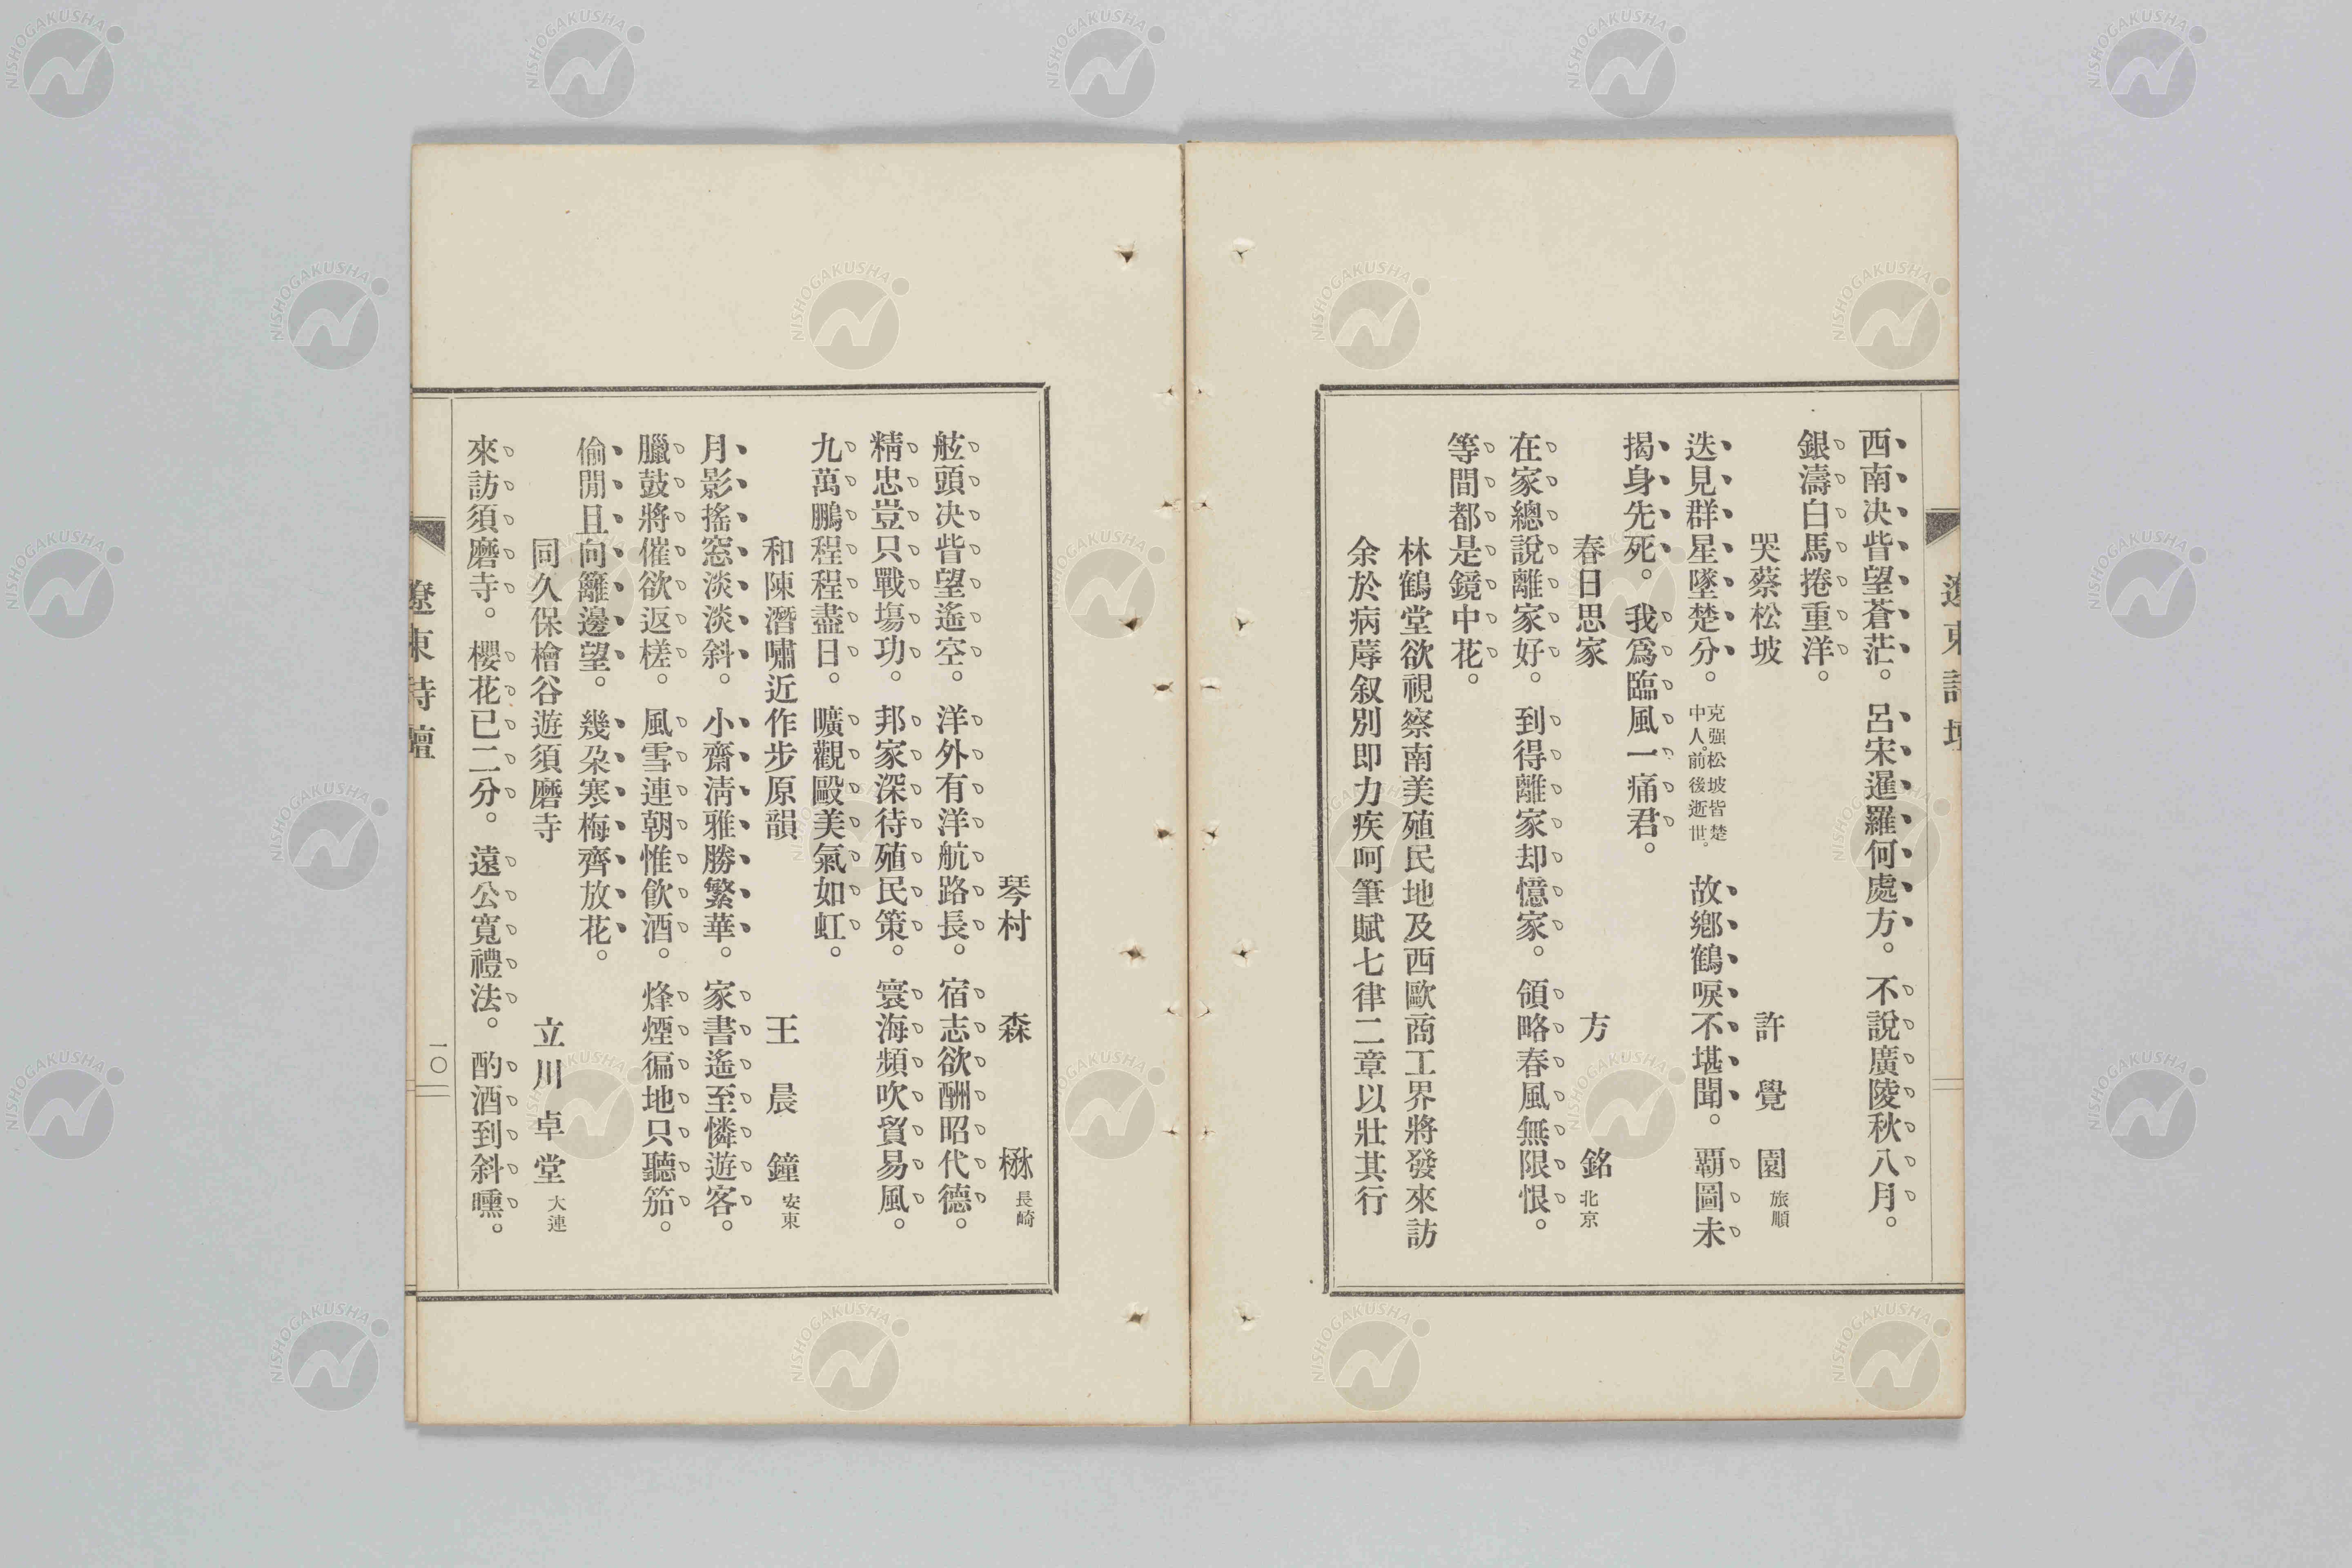 西南決眥望蒼茫。呂宋暹羅何處方。不說廣陵秋八月。
銀濤白馬捲重洋。
哭蔡松坡 許覺園 旅順
迭見群星墜楚分。克强松坡皆楚中人。前後逝世。故鄕鶴唳不堪聞。覇圖未
揭身先死。我爲臨風一痛君。
春日思家 方銘 北京
在家總說離家好。到得離家却憶家。領略春風無限恨。
等間都是鏡中花。
林鶴堂欲視察南美殖民地及西歐商工界將發來訪
余於病蓐叙別即力疾呵筆賦七律二章以壯其行
琴村 森 楙 長崎
舷頭决眥望遙空。洋外有洋航路長。宿志欲酬昭代德。
精忠豈只戰塲功。邦家深待殖民策。寰海頻吹貿易風。
九萬鵬程程盡日。曠觀毆美氣如虹。
和陳潛嘯近作步原韻 王晨鐘 安東
月影搖窓淡淡斜。小齋淸雅勝繁華。家書遙至憐遊客。
臘鼓將催欲返槎。風雪連朝惟飮酒。烽煙徧地只聽笳。
偷閒且向籬邊望。幾朶寒梅齊放花。
同久保檜谷遊須磨寺 立川卓堂 大連
來訪須磨寺。櫻花已二分。遠公寬禮法。酌酒到斜曛。
遼東詩壇 一〇
NISHOGAKUSHA